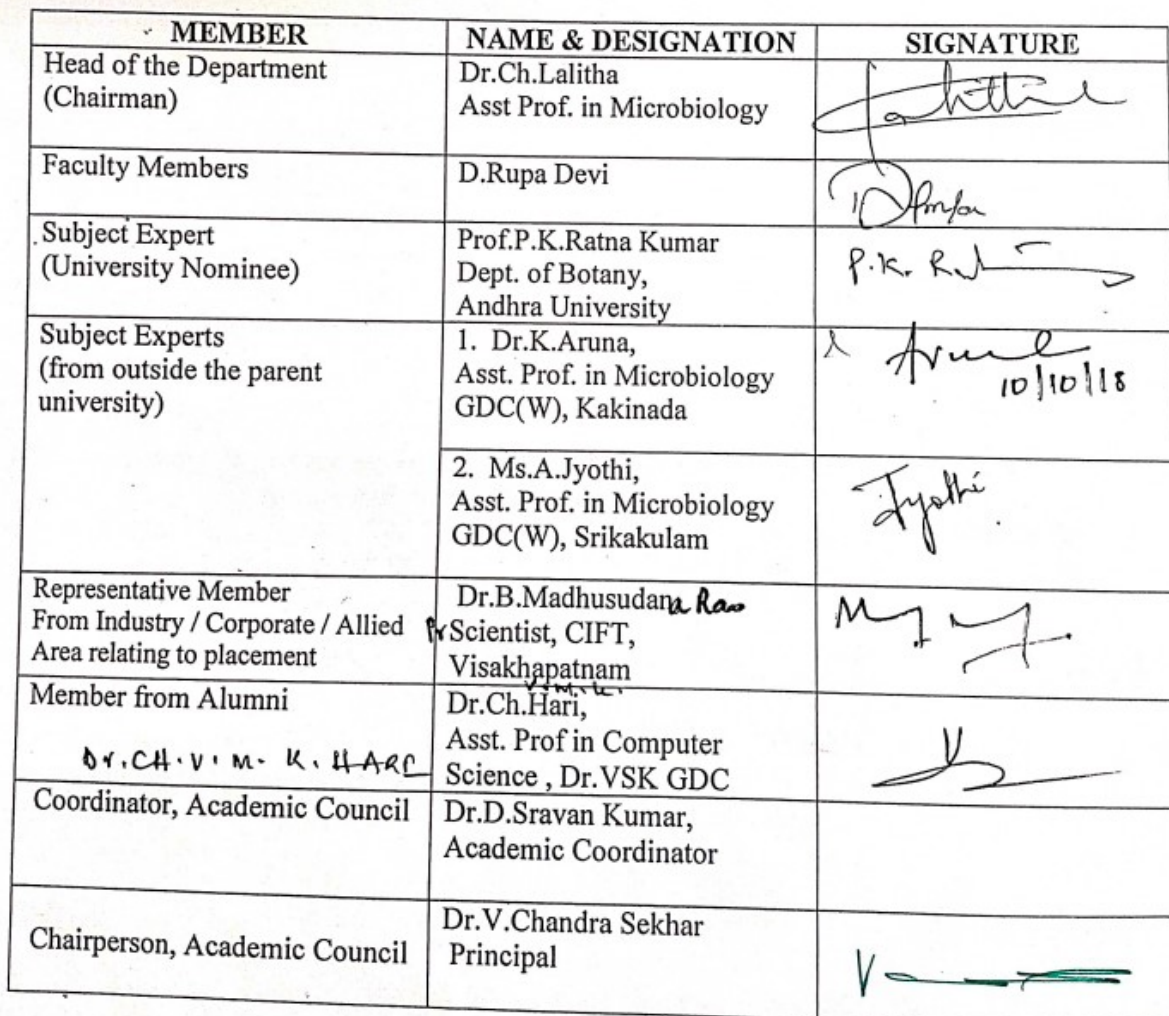 MEMBER NAME & DESIGNATION SIGNATURE
Head of the Department
(Chairman)
Dr.Ch.Lalitha
Asst Prof. in Microbiology
Faculty Members
D.Rupa Devi
Subject Expert
(University Nominee)
Prof.P.K.Ratna Kumar
Dept. of Botany,
Andhra University
P.K.
Subject Experts
(from outside the parent
university)
1. Dr.K.Aruna,
Asst. Prof. in Microbiology
GDC(W), Kakinada
10/10/18
2. Ms.A.Jyothi,
Asst. Prof. in Microbiology
GDC(W), Srikakulam
Jyothi
Representative Member
From Industry / Corporate / Allied
Area relating to placement
Dr.B.Madhusudana Rao
Pr Scientist, CIFT,
Visakhapatnam
Member from Alumni
Dr.CH.V.M.K.HARI
Dr.Ch.Hari,
Asst. Prof in Computer
Science , Dr.VSK GDC
Coordinator, Academic Council
Dr.D.Sravan Kumar,
Academic Coordinator
Chairperson, Academic Council
Dr.V.Chandra Sekhar
Principal